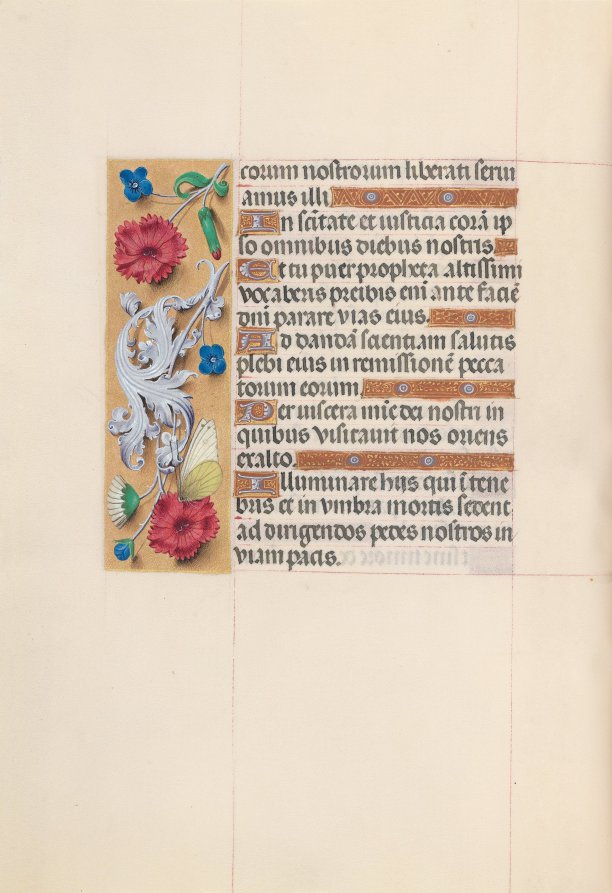 corum nostrorum liberati serui
amus illi
In sc̄itate et iusticia corā ip
so omnibus diebus nostris.
Et tu puer propheta altissimi
vocaberis preibis eni᷈ ante faciē
dn̄i parare vias eius.
Ad dandā scientiam salutis
plebi eius in remissionē pecca
torum eorum
Per viscera mi᷈e dei nostri in
quibus visitauit nos oriens
exalto.
Illuminare hijs qui ī tene
bris et in vmbra mortis sedent
ad dirigendos pedes nostros in
viam pacis.